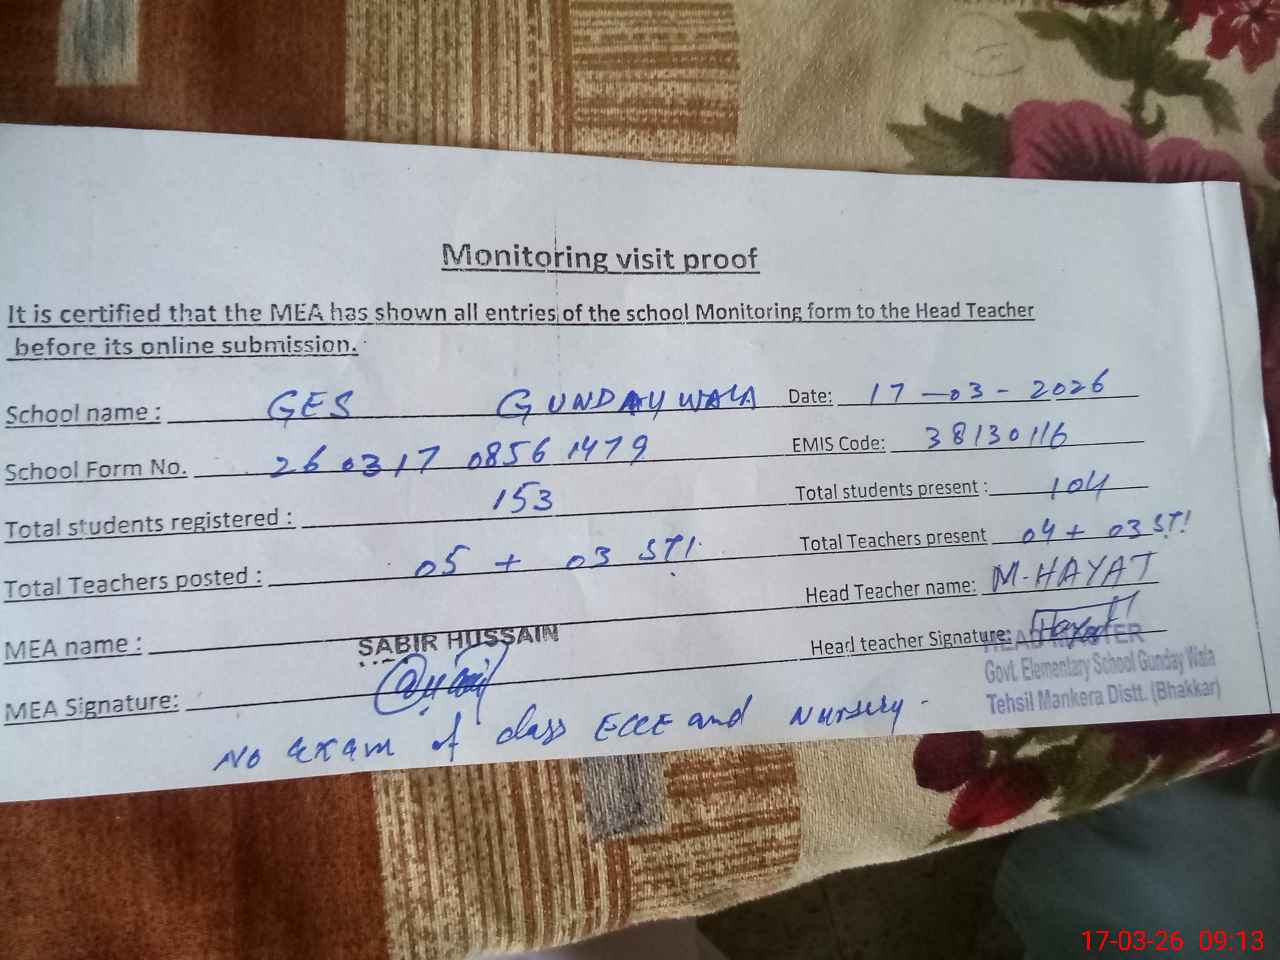 Monitoring visit proof
It is certified that the MEA has shown all entries of the school Monitoring form to the Head Teacher
before its online submission.
School name : GES GUNDAYWALA Date: 17-03-2026
School Form No. 260317 08561479 EMIS Code: 38130116
Total students registered : 153 Total students present : 104
Total Teachers posted : 05 + 03 STI. Total Teachers present 04 + 03 STI
MEA name : SABIR HUSSAIN Head Teacher name: M-HAYAT
MEA Signature: Head teacher Signature: Hayat
HEAD MASTER
Govt. Elementary School Gunday Wala
Tehsil Mankera Distt. (Bhakkar)
No exam of class ECCE and Nursery -
17-03-26 09:13